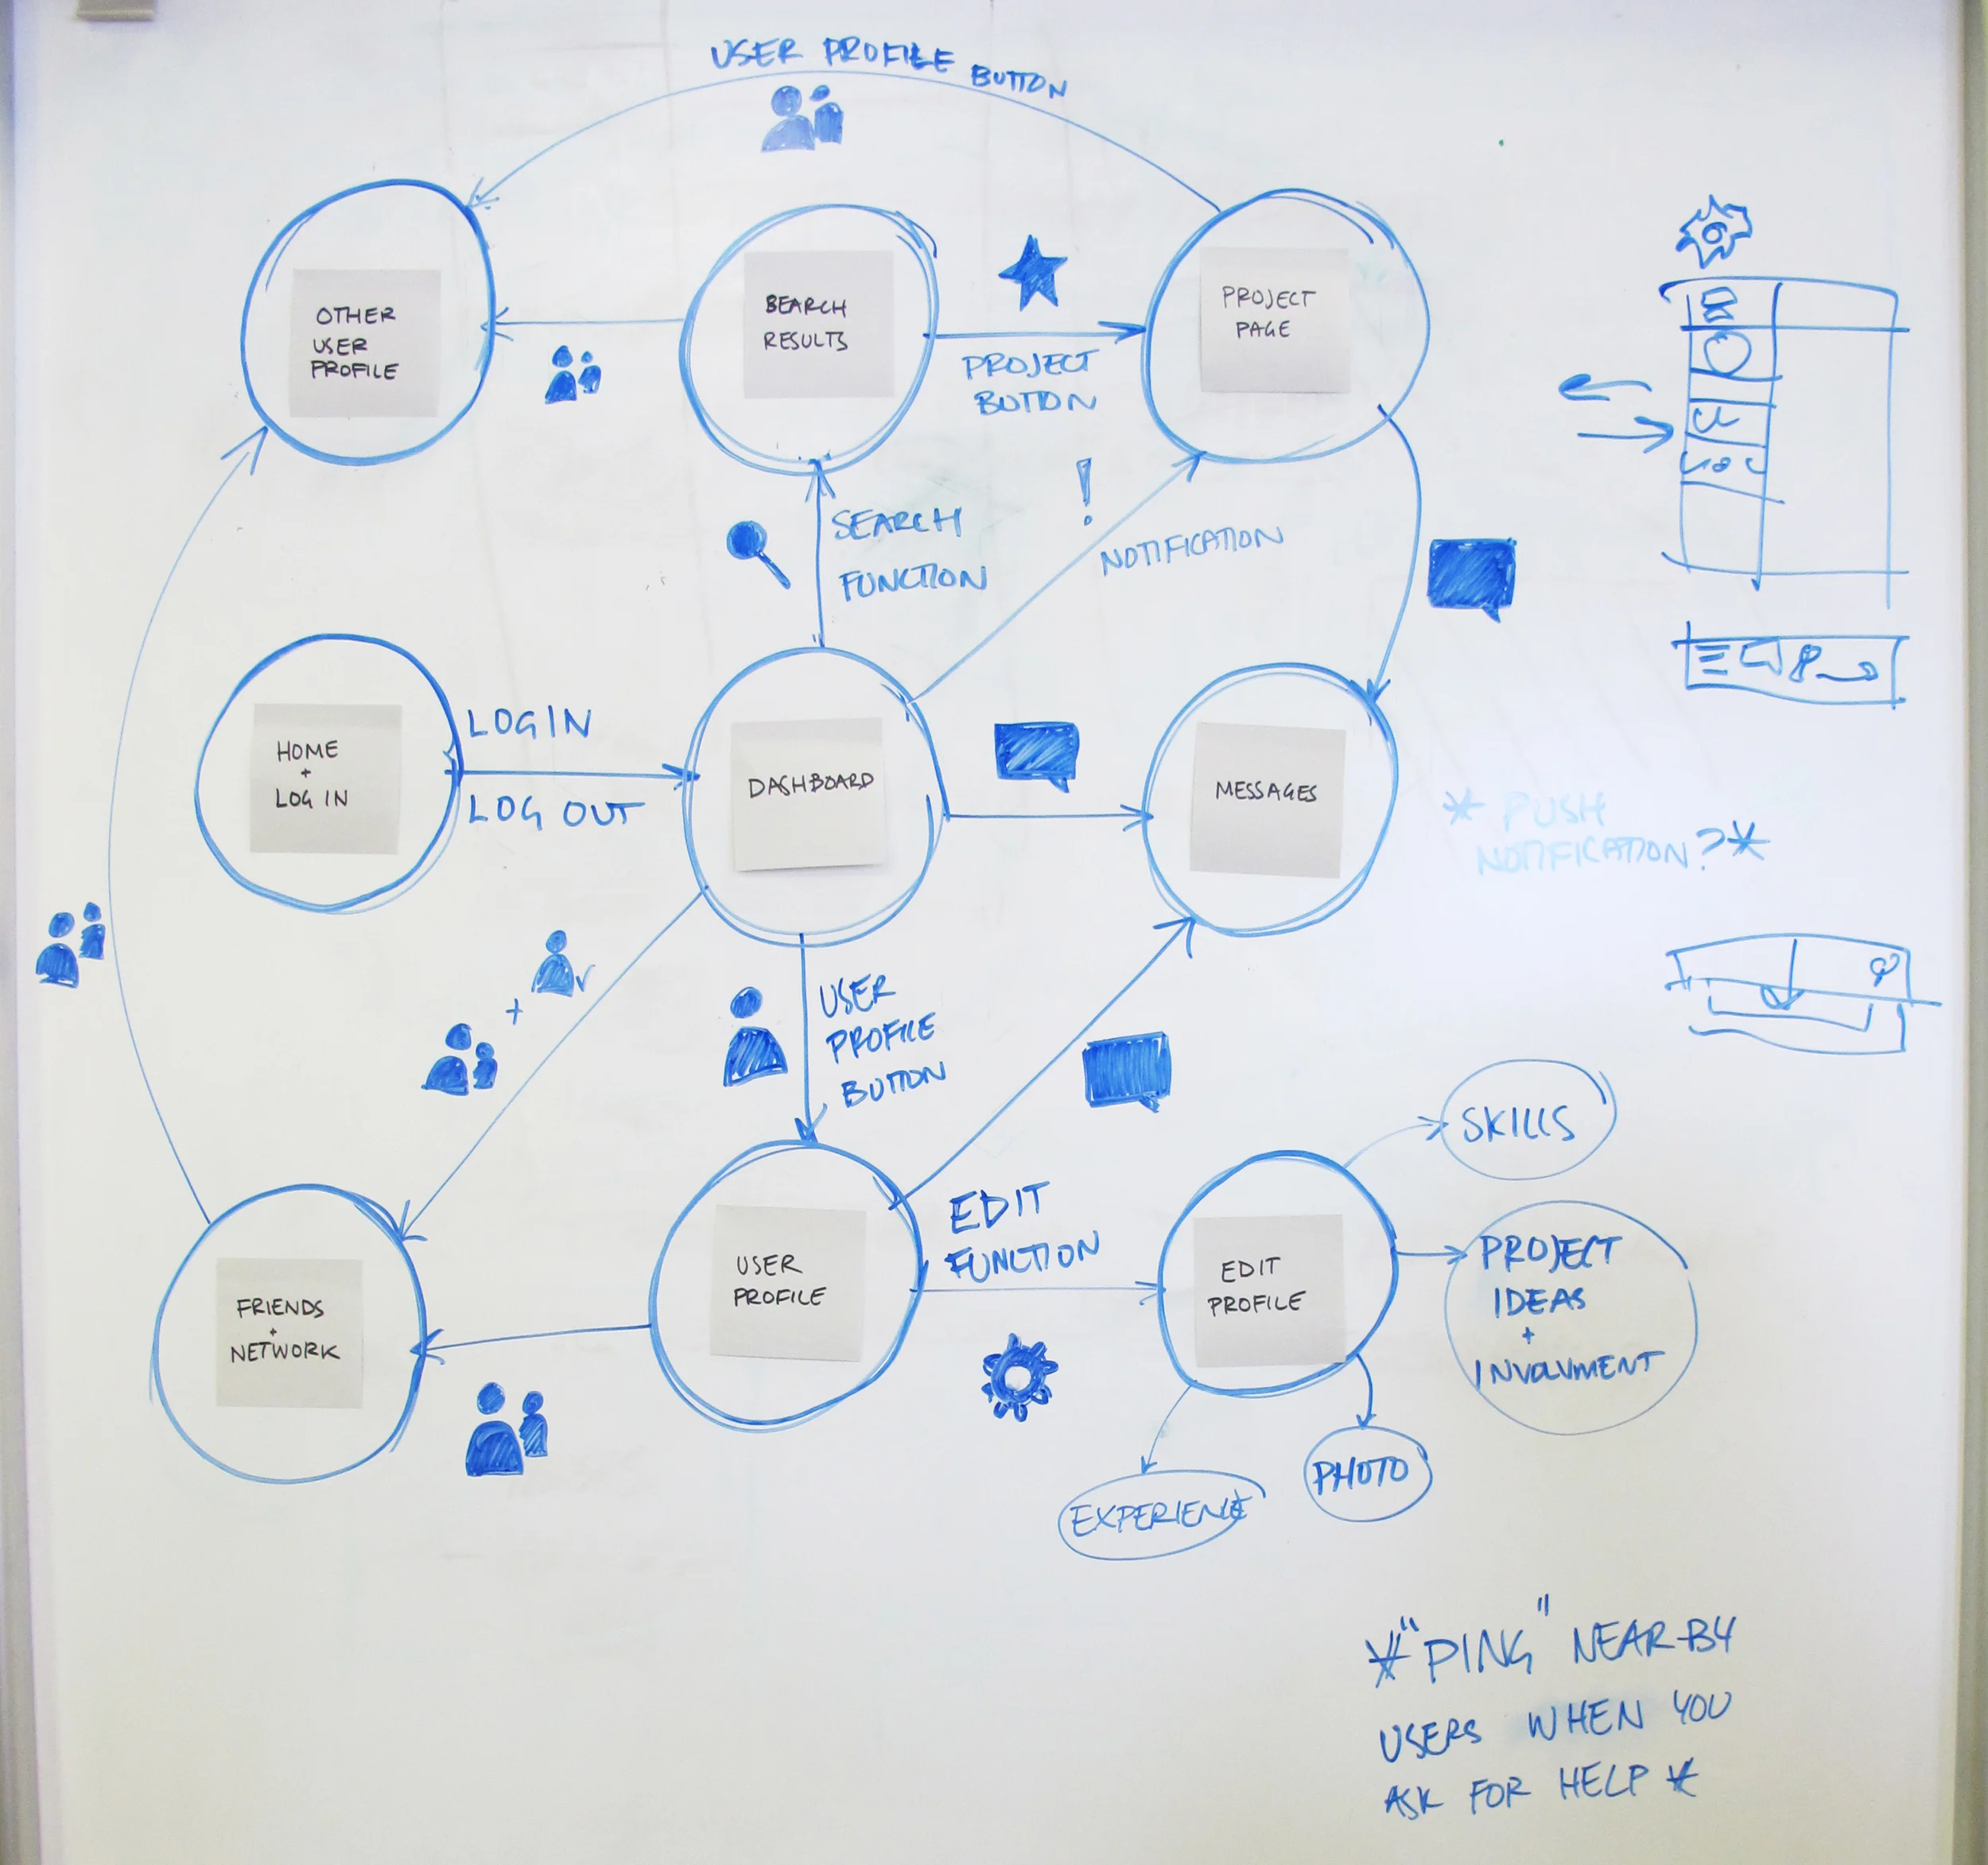 USER PROFILE BUTTON
OTHER
USER
PROFILE
SEARCH
RESULTS
PROJECT
BUTTON
PROJECT
PAGE
!
SEARCH
FUNCTION
NOTIFICATION
HOME
+
LOG IN
LOG IN
LOG OUT
DASHBOARD
MESSAGES
* PUSH
NOTIFICATION?*
+
USER
PROFILE
BUTTON
FRIENDS
+
NETWORK
USER
PROFILE
EDIT
FUNCTION
EDIT
PROFILE
SKILLS
PROJECT
IDEAS
+
INVOLVMENT
PHOTO
EXPERIENCE
*"PING" NEAR-BY
USERS WHEN YOU
ASK FOR HELP *